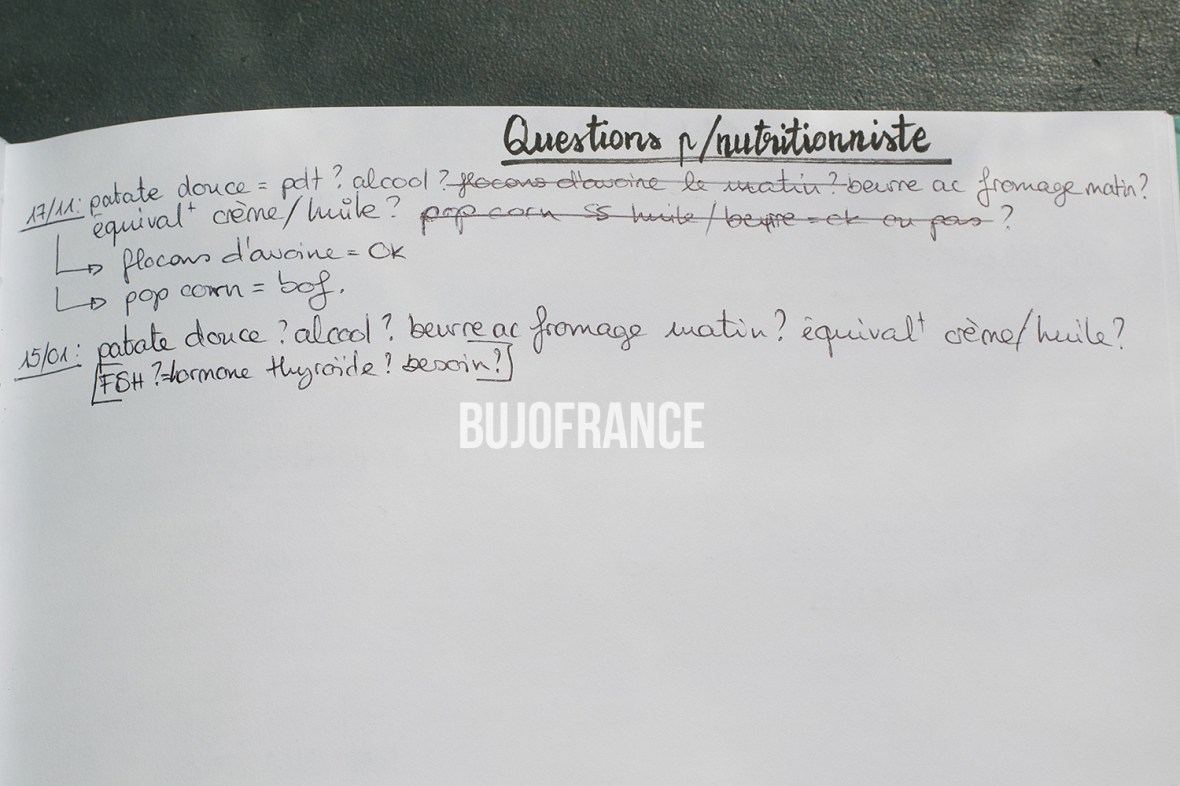 Questions p/nutritionniste
17/11: patate douce = pdt ? alcool ? flocons d'avoine le matin ? beurre ac fromage matin ?
équival^t crème/huile ? pop corn ss huile/beurre = ok ou pas ?
↳ flocons d'avoine = OK
↳ pop corn = bof.
15/01: patate douce ? alcool ? beurre ac fromage matin ? équival^t crème/huile ?
[FSH ? = hormone thyroïde ? besoin ?]
BUJOFRANCE